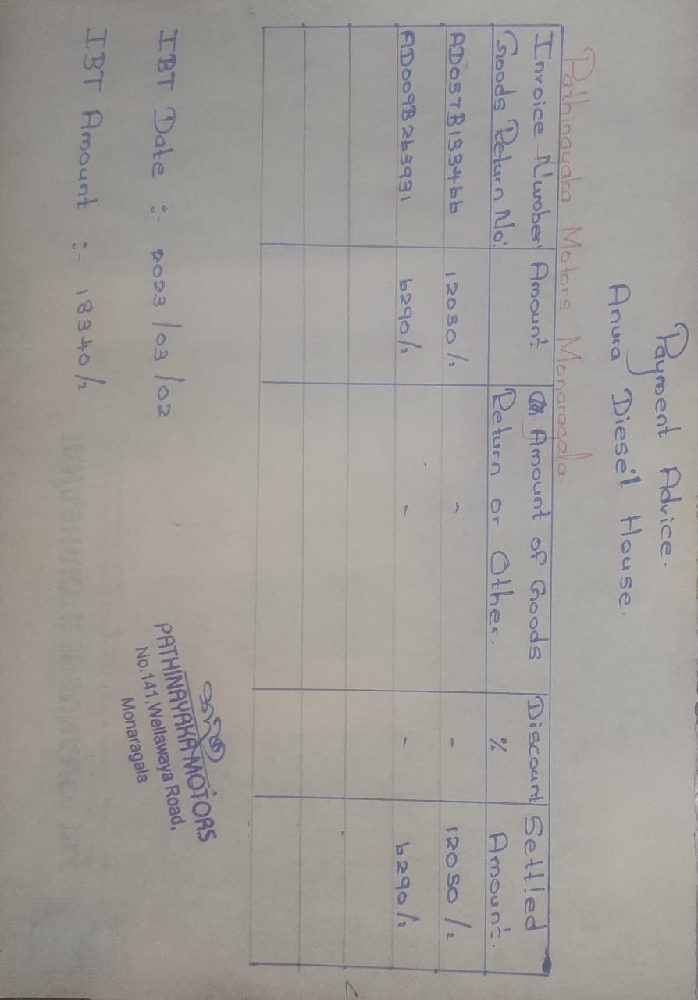 Payment Advice.
Anura Diesel House.
Pathinayaka Motors Monaragala
Invoice Number Amount Amount of Goods Discount Settled
Goods Return No: Return or Other. % Amount.
AD057B133466 12050/= - - 12050/=
AD009B263931 6290/= - - 6290/=
IBT Date :- 2023/03/02
IBT Amount :- 18340/=
PATHINAYAKA MOTORS
No.141, Wellawaya Road,
Monaragala